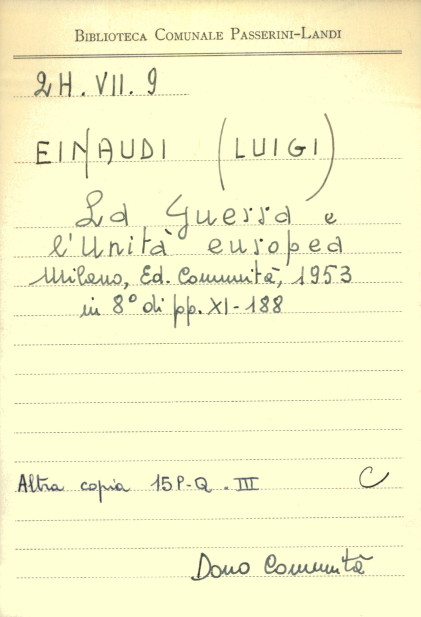 BIBLIOTECA COMUNALE PASSERINI-LANDI
2H. VII. 9
EINAUDI (LUIGI)
La Guerra e
l'Unità europea
Milano, Ed. Comunità, 1953
in 8° di pp. XI-188
Altra copia 15P-Q. III C
Dono Comunità